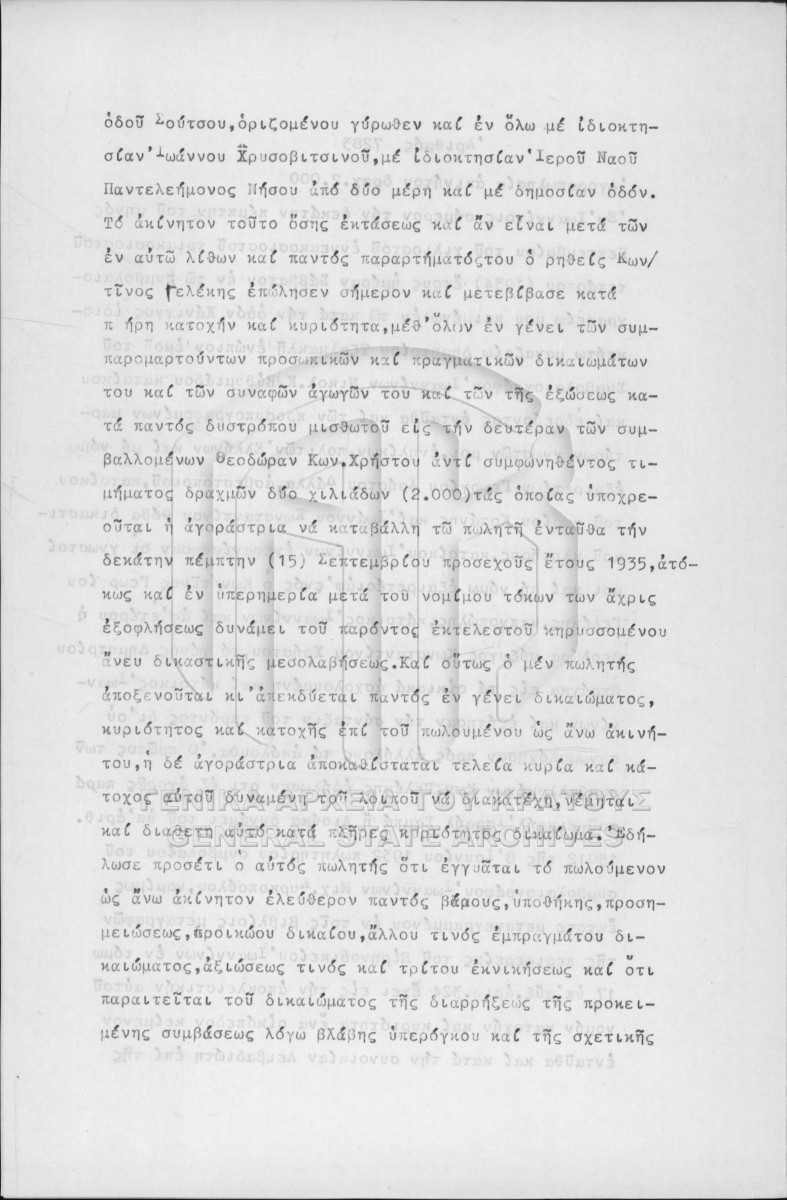 ὁδοῦ Σούτσου,ὁριζομένου γύρωθεν καί ἐν ὅλω μέ ἰδιοκτη-
σίαν Ἰωάννου Χρυσοβιτσινοῦ,μέ ἰδιοκτησίαν Ἱεροῦ Ναοῦ
Παντελεήμονος Νήσου ἀπό δύο μέρη καί μέ δημοσίαν ὁδόν.
Τό ἀκίνητον τοῦτο ὅσης ἐκτάσεως καί ἄν εἶναι μετά τῶν
ἐν αὐτῶ λίθων καί παντός παραρτήματόςτου ὁ ρηθείς Κων/
τῖνος Γελέκης ἐπώλησεν σήμερον καί μετεβίβασε κατά
π ήρη κατοχήν καί κυριότητα,μέθ'ὅλων ἐν γένει τῶν συμ-
παρομαρτούντων προσωπικῶν καί πραγματικῶν δικαιωμάτων
του καί τῶν συναφῶν ἀγωγῶν του καί τῶν τῆς ἐξώσεως κα-
τά παντός δυστρόπου μισθωτοῦ εἰς τήν δευτέραν τῶν συμ-
βαλλομένων Θεοδώραν Κων.Χρήστου ἀντί συμφωνηθέντος τι-
μήματος δραχμῶν δύο χιλιάδων (2.000)τάς ὁποίας ὑποχρε-
οῦται ἡ ἀγοράστρια νά καταβάλλη τῶ πωλητῆ ἐνταῦθα τήν
δεκάτην πέμπτην (15) Σεπτεμβρίου προσεχοῦς ἔτους 1935,ἀτό-
κως καί ἐν ὑπερημερία μετά τοῦ νομίμου τόκων των ἄχρις
ἐξοφλήσεως δυνάμει τοῦ παρόντος ἐκτελεστοῦ κηρυσσομένου
ἄνευ δικαστικῆς μεσολαβήσεως.Καί οὕτως ὁ μέν πωλητής
ἀποξενοῦται κι'ἀπεκδύεται παντός ἐν γένει δικαιώματος,
κυριότητος καί κατοχῆς ἐπί τοῦ πωλουμένου ὡς ἄνω ἀκινή-
του,ἡ δέ ἀγοράστρια ἀποκαθίσταται τελεία κυρία καί κά-
τοχος αὐτοῦ δυναμένη τοῦ λοιποῦ νά διακατέχη,νέμηται
ΓΕΝΙΚΑ ΑΡΧΕΙΑ ΤΟΥ ΚΡΑΤΟΥΣ
καί διαθέτη αὐτό κατά πλῆρες κυριότητος δικαίωμα.Ἐδή-
GENERAL STATE ARCHIVES
λωσε προσέτι ὁ αὐτός πωλητής ὅτι ἐγγυᾶται τό πωλούμενον
ὡς ἄνω ἀκίνητον ἐλεύθερον παντός βάρους,ὑποθήκης,προση-
μειώσεως,προικώου δικαίου,ἄλλου τινός ἐμπραγμάτου δι-
καιώματος,ἀξιώσεως τινός καί τρίτου ἐκνικήσεως καί ὅτι
παραιτεῖται τοῦ δικαιώματος τῆς διαρρήξεώς τῆς προκει-
μένης συμβάσεως λόγω βλάβης ὑπερόγκου καί τῆς σχετικῆς